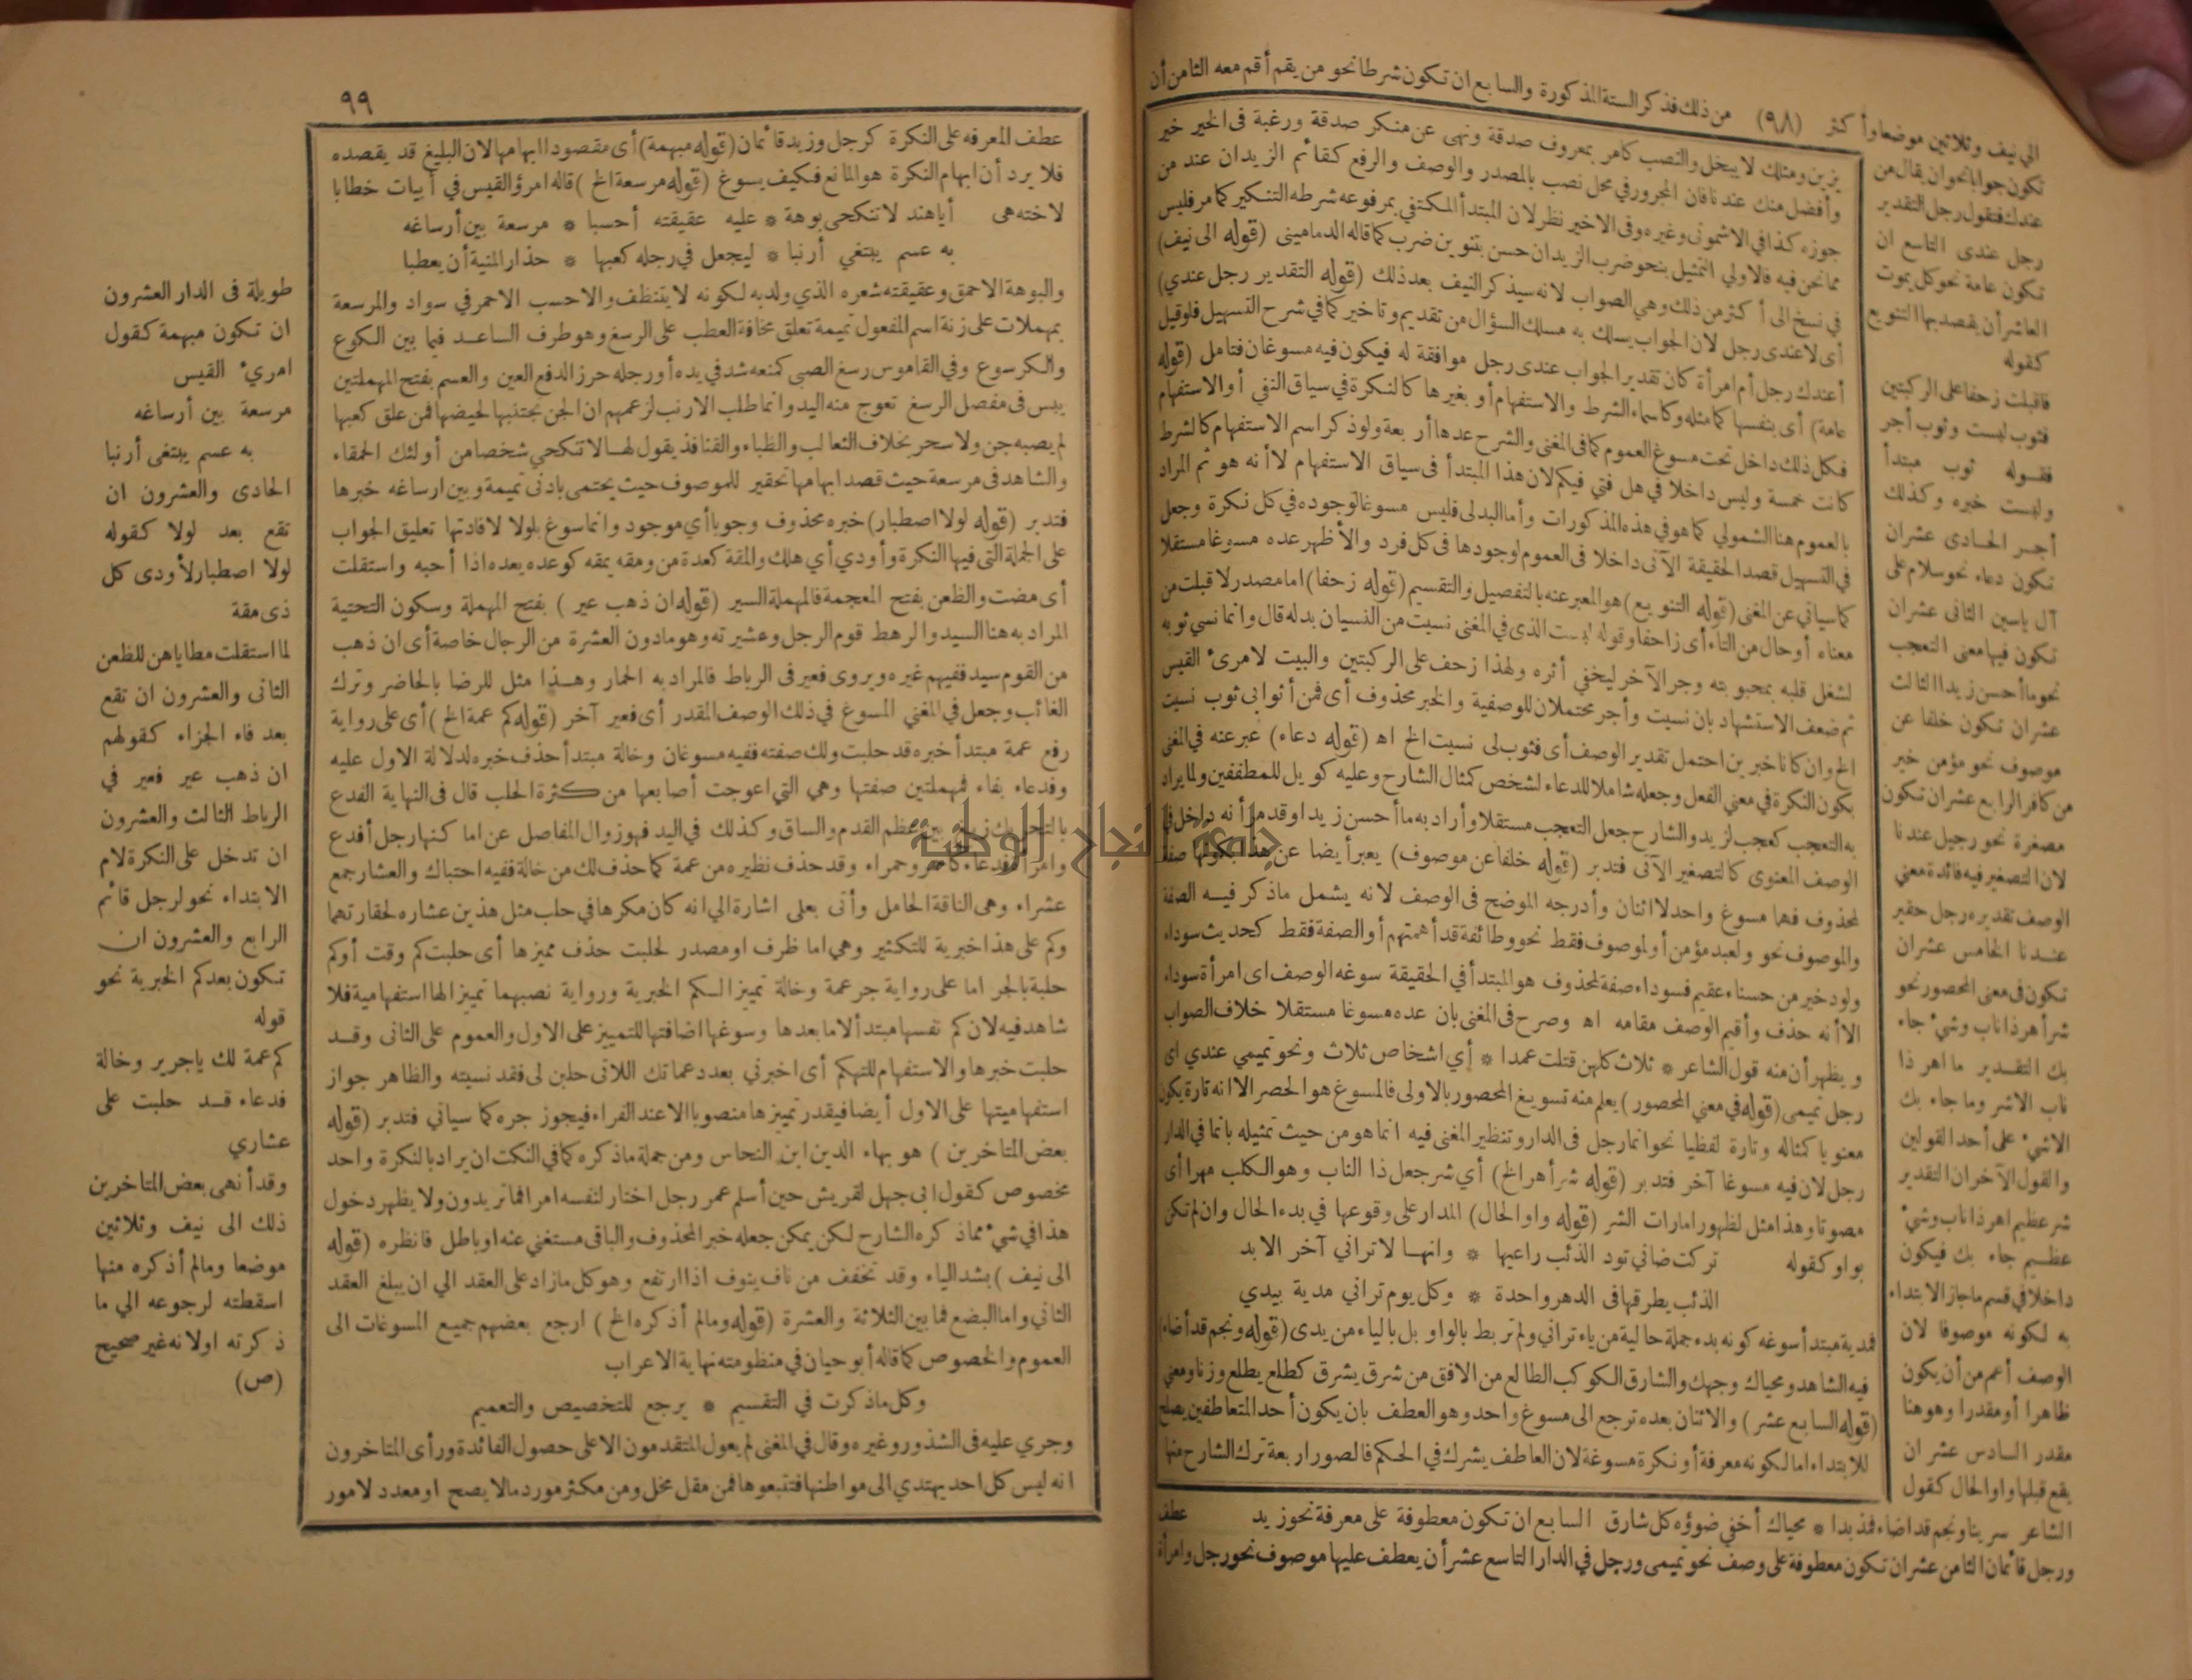 الي نيف وثلاثين موضعا وأكثر (٩٨) من ذلك فذكر الستة المذكورة والسابع ان تكون شرطا نحو من يقم أقم معه الثامن أن
تكون جوابا نحو ان يقال من
عندك فتقول رجل التقدير
رجل عندى التاسع ان
تكون عامة نحو كل يموت
العاشر أن يقصد بها التنويع
كقوله
فاقبلت زحفا على الركبتين
فثوب لبست وثوب أجر
فقوله ثوب مبتدأ
ولبست خبره وكذلك
أجر الحادى عشران
تكون دعاء نحو سلام على
آل ياسين الثانى عشران
تكون فيها معنى التعجب
نحو ما أحسن زيدا الثالث
عشران تكون خلفا عن
موصوف نحو مؤمن خير
من كافر الرابع عشران تكون
مصغرة نحو رجيل عندنا
لان التصغير فيه فائدة معنى
الوصف تقديره رجل حقير
عندنا الخامس عشران
تكون فى معنى المحصور نحو
شر أهر ذا ناب وشيء جاء
بك التقدير ما اهر ذا
ناب الا شر وما جاء بك
الا شيء على أحد القولين
والقول الآخر ان التقدير
شر عظيم اهر ذا ناب وشيء
عظيم جاء بك فيكون
داخلا في قسم ما جاز الابتداء
به لكونه موصوفا لان
الوصف أعم من أن يكون
ظاهرا أو مقدرا وهو هنا
مقدر السادس عشر ان
يقع قبلها واو الحال كقول
الشاعر سرينا ونجم قد اضاء فمذ بدا * محياك أخفي ضوؤه كل شارق السابع ان تكون معطوفة على معرفة نحو زيد
ورجل قائمان الثامن عشران تكون معطوفة على وصف نحو تميمى ورجل في الدار التاسع عشر أن يعطف عليها موصوف نحو رجل وامرأة
يزين ومثلك لا يبخل والنصب كامر بمعروف صدقة ونهى عن منكر صدقة ورغبة فى الخير خير
وأفضل منك عندنا فان المجرور في محل نصب بالمصدر والوصف والرفع كقائم الزيدان عند من
جوزه كذا في الاشمونى وغيره وفى الاخير نظر لان المبتدأ المكتفي بمرفوعه شرطه التنكير كما مر فليس
مما نحن فيه فالاولي التمثيل بنحو ضرب الزيدان حسن بتنوين ضرب كما قاله الدمامينى (قوله الى نيف)
في نسخ الى أكثر من ذلك وهي الصواب لانه سيذكر النيف بعد ذلك (قوله التقدير رجل عندي)
أى لا عندى رجل لان الجواب يسلك به مسلك السؤال من تقديم وتاخير كما في شرح التسهيل فلو قيل
أعندك رجل أم امرأة كان تقدير الجواب عندى رجل موافقة له فيكون فيه مسوغان فتامل (قوله
عامة) أى بنفسها كما مثله وكاسماء الشرط والاستفهام أو بغيرها كالنكرة في سياق النفي أو الاستفهام
فكل ذلك داخل تحت مسوغ العموم كما فى المغنى والشرح عدها أربعة ولو ذكر اسم الاستفهام كالشرط
كانت خمسة وليس داخلا في هل فتي فيكم لان هذا المبتدأ فى سياق الاستفهام لا أنه هو ثم المراد
بالعموم هنا الشمولي كما هو في هذه المذكورات وأما البدلى فليس مسوغا لوجوده في كل نكرة وجعل
في التسهيل قصد الحقيقة الآتى داخلا فى العموم لوجودها فى كل فرد والأظهر عده مسوغا مستقلا
كما سياتي عن المغنى (قوله التنويع) هو المعبر عنه بالتفصيل والتقسيم (قوله زحفا) اما مصدر لاقبلت من
معناه أو حال من التاء أى زاحفا وقوله لبست الذى في المغنى نسيت من النسيان بدله قال وانما نسي ثوبه
لشغل قلبه بمحبوبته وجر الآخر ليخفي أثره ولهذا زحف على الركبتين والبيت لامرئ القيس
ثم ضعف الاستشهاد بان نسيت وأجر محتملان للوصفية والخبر محذوف أى فمن أثوابى ثوب نسيت
الخ وان كانا خبرين احتمل تقدير الوصف أى فثوب لى نسيت الخ اه (قوله دعاء) عبر عنه في المغنى
بكون النكرة في معني الفعل وجعله شاملا للدعاء لشخص كمثال الشارح وعليه كويل للمطففين ولما يراد
به التعجب كعجب لزيد والشارح جعل التعجب مستقلا وأراد به ما أحسن زيدا وقد مر أنه داخل في
الوصف المعنوى كالتصغير الآتى فتدبر (قوله خلفا عن موصوف) يعبر أيضا عن هذا بكونها صفة
لمحذوف فهما مسوغ واحد لا اثنان وأدرجه الموضح فى الوصف لانه يشمل ما ذكر فيه الصفة
والموصوف نحو ولعبد مؤمن أو الموصوف فقط نحو وطائفة قد أهمتهم أو الصفة فقط كحديث سوداء
ولود خير من حسناء عقيم فسوداء صفة لمحذوف هو المبتدأ في الحقيقة سوغه الوصف اى امرأة سوداء
الا أنه حذف وأقيم الوصف مقامه اه وصرح فى المغنى بان عده مسوغا مستقلا خلاف الصواب
ويظهر أن منه قول الشاعر * ثلاث كلهن قتلت عمدا * أي اشخاص ثلاث ونحو تميمي عندي اى
رجل تميمى (قوله في معني المحصور) يعلم منه تسويغ المحصور بالاولى فالمسوغ هو الحصر الا انه تارة يكون
معنويا كمثاله وتارة لفظيا نحو انما رجل فى الدار وتنظير المغنى فيه انما هو من حيث تمثيله بانما في الدار
رجل لان فيه مسوغا آخر فتدبر (قوله شر أهر الخ) أي شر جعل ذا الناب وهو الكلب مهرا أى
مصوتا وهذا مثل لظهور امارات الشر (قوله واو الحال) المدار على وقوعها في بدء الحال وان لم تكن
بواو كقوله تركت ضاني تود الذئب راعيها * وانها لا تراني آخر الابد
الذئب يطرقها فى الدهر واحدة * وكل يوم تراني مدية بيدي
فمدية مبتدأ سوغه كونه بدء جملة حالية من ياء تراني ولم تربط بالواو بل بالياء من يدى (قوله ونجم قد أضاء)
فيه الشاهد ومحياك وجهك والشارق الكوكب الطالع من الافق من شرق يشرق كطلع يطلع وزنا ومعني
(قوله السابع عشر) والاثنان بعده ترجع الى مسوغ واحد وهو العطف بان يكون أحد المتعاطفين يصلح
للابتداء اما لكونه معرفة أو نكرة مسوغة لان العاطف يشرك في الحكم فالصور اربعة ترك الشارح منها
عطف
٩٩
عطف المعرفه على النكرة كرجل وزيد قائمان (قوله مبهمة) أى مقصودا ابهامها لان البليغ قد يقصده
فلا يرد أن ابهام النكرة هو المانع فكيف يسوغ (قوله مرسعة الخ) قاله امرؤ القيس في أبيات خطابا
لاخته هى أيا هند لا تنكحى بوهة * عليه عقيقته أحسبا * مرسعة بين أرساغه
به عسم يبتغي أرنبا * ليجعل في رجله كعبها * حذار المنية أن يعطبا
والبوهة الاحمق وعقيقته شعره الذي ولد به لكونه لا يتنظف والاحسب الاحمر في سواد والمرسعة
بمهملات على زنة اسم المفعول تميمة تعلق مخافة العطب على الرسغ وهو طرف الساعد فيما بين الكوع
والكرسوع وفي القاموس رسغ الصبى كمنعه شد في يده أو رجله حرزا لدفع العين والعسم بفتح المهملتين
يبس فى مفصل الرسغ تعوج منه اليد وانما طلب الارنب لزعمهم ان الجن تجتنبها لحيضها فمن علق كعبها
لم يصبه جن ولا سحر بخلاف الثعالب والظباء والقنافذ يقول لها لا تنكحي شخصا من أولئك الحمقاء
والشاهد فى مرسعة حيث قصد ابهامها تحقير للموصوف حيث يحتمى بادنى تميمة وبين ارساغه خبرها
فتدبر (قوله لولا اصطبار) خبره محذوف وجوبا أي موجود وانما سوغ بلولا لافادتها تعليق الجواب
على الجملة التى فيها النكرة وأودي أي هلك والمقة كعدة من ومقه يمقه كوعده يعده اذا أحبه واستقلت
أى مضت والظعن بفتح المعجمة فالمهملة السير (قوله ان ذهب عير) بفتح المهملة وسكون التحتية
المراد به هنا السيد والرهط قوم الرجل وعشيرته وهو ما دون العشرة من الرجال خاصة أى ان ذهب
من القوم سيد ففيهم غيره ويروى فعير فى الرباط فالمراد به الحمار وهذا مثل للرضا بالحاضر وترك
الغائب وجعل في المغني المسوغ في ذلك الوصف المقدر أى فعير آخر (قوله كم عمة الخ) أى على رواية
رفع عمة مبتدأ خبره قد حلبت ولك صفته ففيه مسوغان وخالة مبتدأ حذف خبره لدلالة الاول عليه
وفدعاء بفاء فمهملتين صفتها وهي التي اعوجت أصابعها من كثرة الحلب قال فى النهاية الفدع
بالتحريك زيغ بين عظم القدم والساق وكذلك في اليد فهو زوال المفاصل عن اماكنها رجل أفدع
وامرأة فدعاء كأحمر وحمراء وقد حذف نظيره من عمة كما حذف لك من خالة ففيه احتباك والعشار جمع
عشراء وهى الناقة الحامل وأتى بعلى اشارة الي انه كان مكرها في حلب مثل هذين عشاره لحقارتهما
وكم على هذا خبرية للتكثير وهي اما ظرف او مصدر لحلبت حذف مميزها أى حلبت كم وقت أو كم
حلبة بالجر اما على رواية جر عمة وخالة تمييزا لكم الخبرية ورواية نصبهما تمييزا لها استفهامية فلا
شاهد فيه لان كم نفسها مبتدأ لا ما بعدها وسوغها اضافتها للتمييز على الاول والعموم على الثانى وقد
حلبت خبرها والاستفهام للتهكم أى اخبرني بعدد عماتك اللاتى حلبن لى فقد نسيته والظاهر جواز
استفهاميتها على الاول أيضا فيقدر تمييزها منصوبا الا عند الفراء فيجوز جره كما سياتي فتدبر (قوله
بعض المتاخرين) هو بهاء الدين ابن النحاس ومن جملة ما ذكره كما في النكت ان يراد بالنكرة واحد
مخصوص كقول ابى جهل لقريش حين أسلم عمر رجل اختار لنفسه امرا فما تريدون ولا يظهر دخول
هذا في شيء مما ذكره الشارح لكن يمكن جعله خبر المحذوف والباقى مستغني عنه او باطل فانظره (قوله
الى نيف) بشد الياء وقد تخفف من ناف ينوف اذا ارتفع وهو كل ما زاد على العقد الي ان يبلغ العقد
الثاني واما البضع فما بين الثلاثة والعشرة (قوله وما لم أذكره الخ) ارجع بعضهم جميع المسوغات الى
العموم والخصوص كما قاله أبو حيان في منظومته نهاية الاعراب
وكل ما ذكرت في التقسيم * يرجع للتخصيص والتعميم
وجري عليه فى الشذور وغيره وقال في المغنى لم يعول المتقدمون الا على حصول الفائدة ورأى المتاخرون
انه ليس كل احد يهتدي الى مواطنها فتتبعوها فمن مقل مخل ومن مكثر مورد ما لا يصح او معدد لامور
طويلة فى الدار العشرون
ان تكون مبهمة كقول
امرئ القيس
مرسعة بين أرساغه
به عسم يبتغى أرنبا
الحادى والعشرون ان
تقع بعد لولا كقوله
لولا اصطبار لأودى كل
ذى مقة
لما استقلت مطاياهن للظعن
الثانى والعشرون ان تقع
بعد فاء الجزاء كقولهم
ان ذهب عير فعير في
الرباط الثالث والعشرون
ان تدخل على النكرة لام
الابتداء نحو لرجل قائم
الرابع والعشرون ان
تكون بعد كم الخبرية نحو
قوله
كم عمة لك يا جرير وخالة
فدعاء قد حلبت على
عشاري
وقد أنهى بعض المتاخرين
ذلك الى نيف وثلاثين
موضعا وما لم أذكره منها
اسقطته لرجوعه الي ما
ذكرته اولانه غير صحيح
(ص)
جامعة النجاح الوطنية